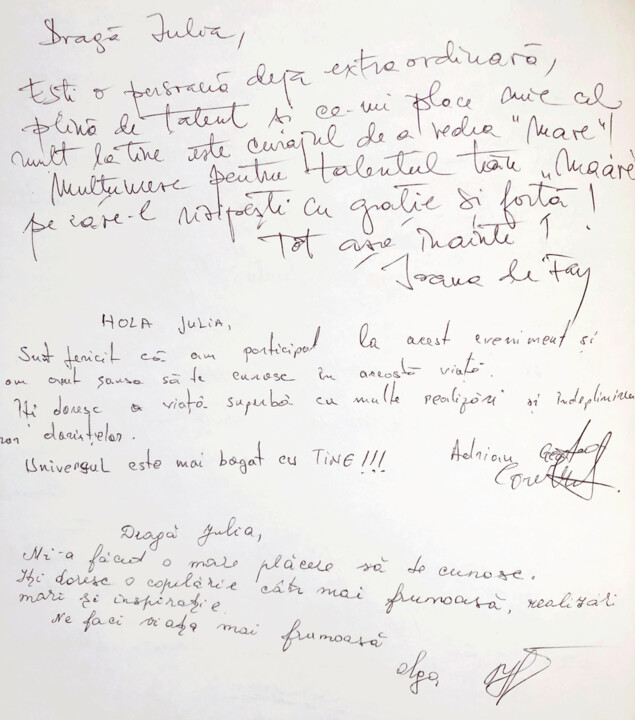 Dragă Julia,
Ești o persoană deja extraordinară,
plină de talent și ce-mi place mie cel
mult la tine este curajul de a vedea "Mare"!
Mulțumesc pentru talentul tău „Maare"
pe care-l risipești cu grație și forță!
Tot așa înainte!
Ioana de Fay
HOLA JULIA,
Sunt fericit că am participat la acest eveniment și
am avut șansa să te cunosc în această viață.
Îți doresc o viață superbă cu multe realizări și îndeplinirea
dorințelor.
Universul este mai bogat cu TINE!!!
Adrian
Dragă Julia,
Mi-a făcut o mare plăcere să te cunosc.
Îți doresc o copilărie cât mai frumoasă, realizări
mari și inspirație.
Ne faci viața mai frumoasă
Olga